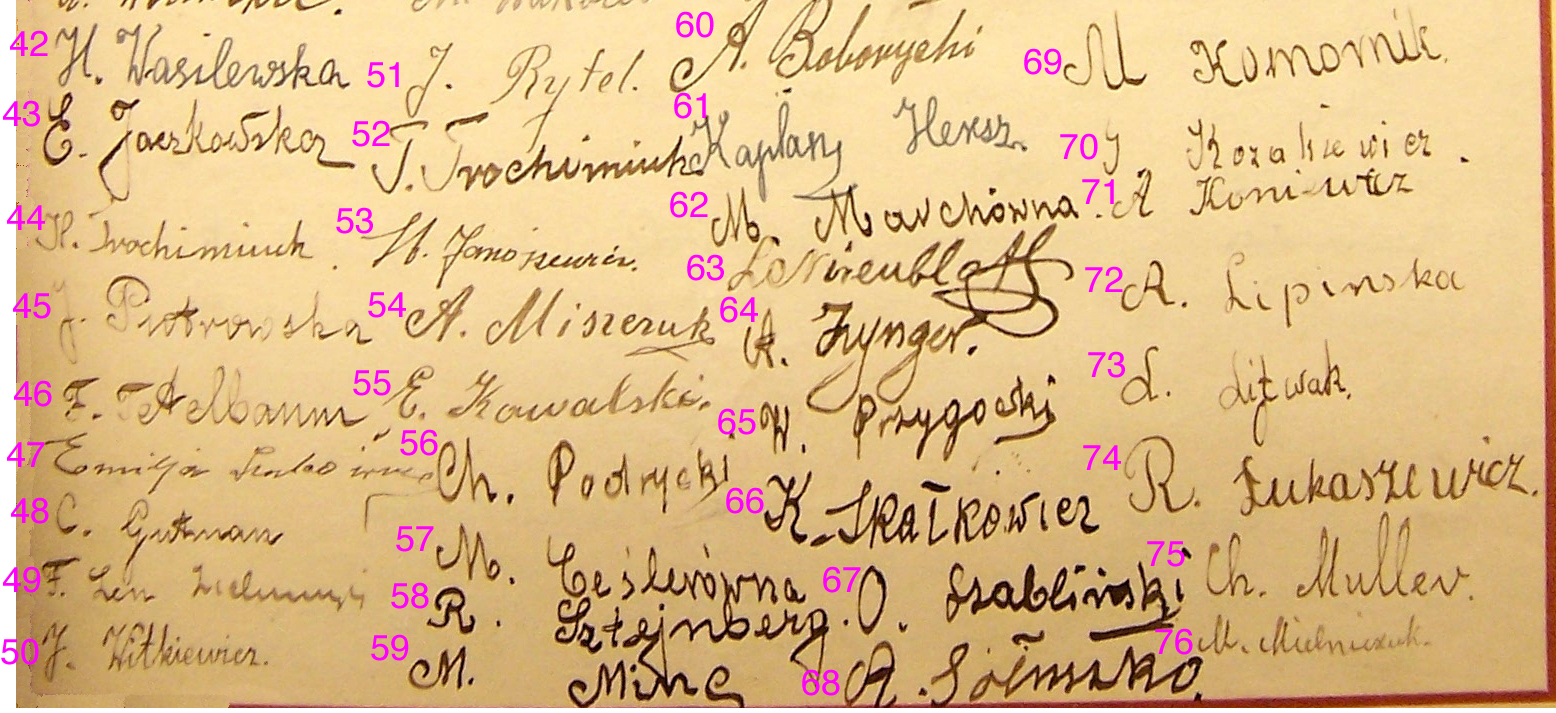 42 H. Wasilewska
43 E. Jaczkowska
44 H. Trochimiuk.
45 J. Piotrowska
46 F. Tetelbaum
47 Emilja
48 C. Gutman
49 F. Len
50 J. Witkiewicz.
51 J. Rytel.
52 T. Trochimiuk
53 H. Janoszewicz.
54 A. Miszeruk
55 E. Kowalski.
56 Ch. Podrycki
57 M. Cieślerówna
58 R. Sztejnberg.
59 M. Minc
60 A.
61 Kapłan, Hersz.
62 M. Marchówna.
63 L. Nireublatt
64 A. Zynger.
65 W. Przygocki
66 K. Skałkowicz
67 O. Szabliński
68 A. Sołmszko.
69 M Komornik.
70 J Kozakiewicz.
71 A Koniewicz
72 R. Lipinska
73 L. Litwak.
74 R. Łukaszewicz.
75 Ch. Muller.
76 M. Mielniczuk.